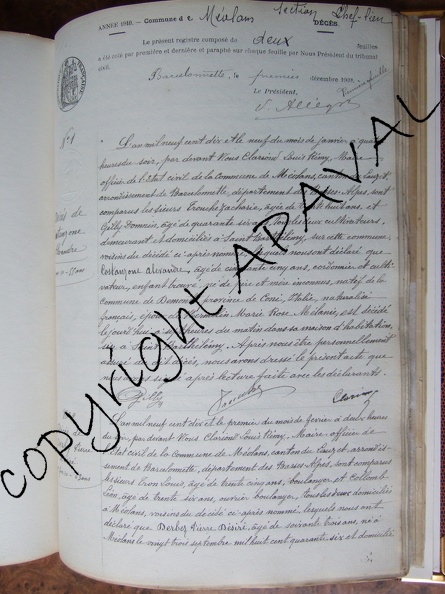 ANNÉE 1910. - Commune de Méolans Section Chef-lieu
DÉCÈS.
Le présent registre composé de deux feuilles
a été coté par première et dernière et paraphé sur chaque feuille par Nous Président du tribunal
civil.
Barcelonnette, le premier décembre 1909.
Le Président,
N° 1
L'an mil neuf cent dix et le neuf du mois de janvier à quatre
heures du soir, par devant Nous Clariond Louis Rémy, Maire
officier de l'état civil de la Commune de Méolans, canton du Lauzet,
arrondissement de Barcelonnette, département des Basses-Alpes, sont
comparus les sieurs Tronche Zacharie, âgé de huit ans, et
Gilly Dominique, âgé de quarante six ans, tous les deux cultivateurs,
demeurant et domiciliés à Saint Barthélemy, sur cette commune,
voisins du décédé ci-après nommé, lesquels nous ont déclaré que
Alexandre, âgé de cinquante cinq ans, cordonnier et culti-
vateur, enfant trouvé, né de père et mère inconnus, natif de la
Commune de Demonte, province de Coni, Italie, naturalisé
français, époux de Germain Marie Rose Mélanie, est décédé
le jour d'hui à heures du matin dans sa maison d'habitation,
sise à Saint Barthélemy. Après nous être personnellement
assuré du dit décès, nous avons dressé le présent acte que
nous avons signé après lecture faite avec les déclarants.
Gilly
L'an mil neuf cent dix et le premier du mois de février à deux heures
du soir, par devant Nous Clariond Louis Rémy, Maire officier de
l'état civil de la Commune de Méolans, canton du Lauzet et arrondis-
sement de Barcelonnette, département des Basses-Alpes, sont comparus
les sieurs Louis, âgé de trente cinq ans, boulanger, et
Léon, âgé de trente six ans, ouvrier boulanger, tous les deux domiciliés
à Méolans, voisins du décédé ci-après nommé, lesquels nous ont
déclaré que Derbez Pierre Désiré, âgé de soixante ans, né à
Méolans le vingt trois septembre mil huit cent quarante six et domicilié
COPYRIGHT APAVAL